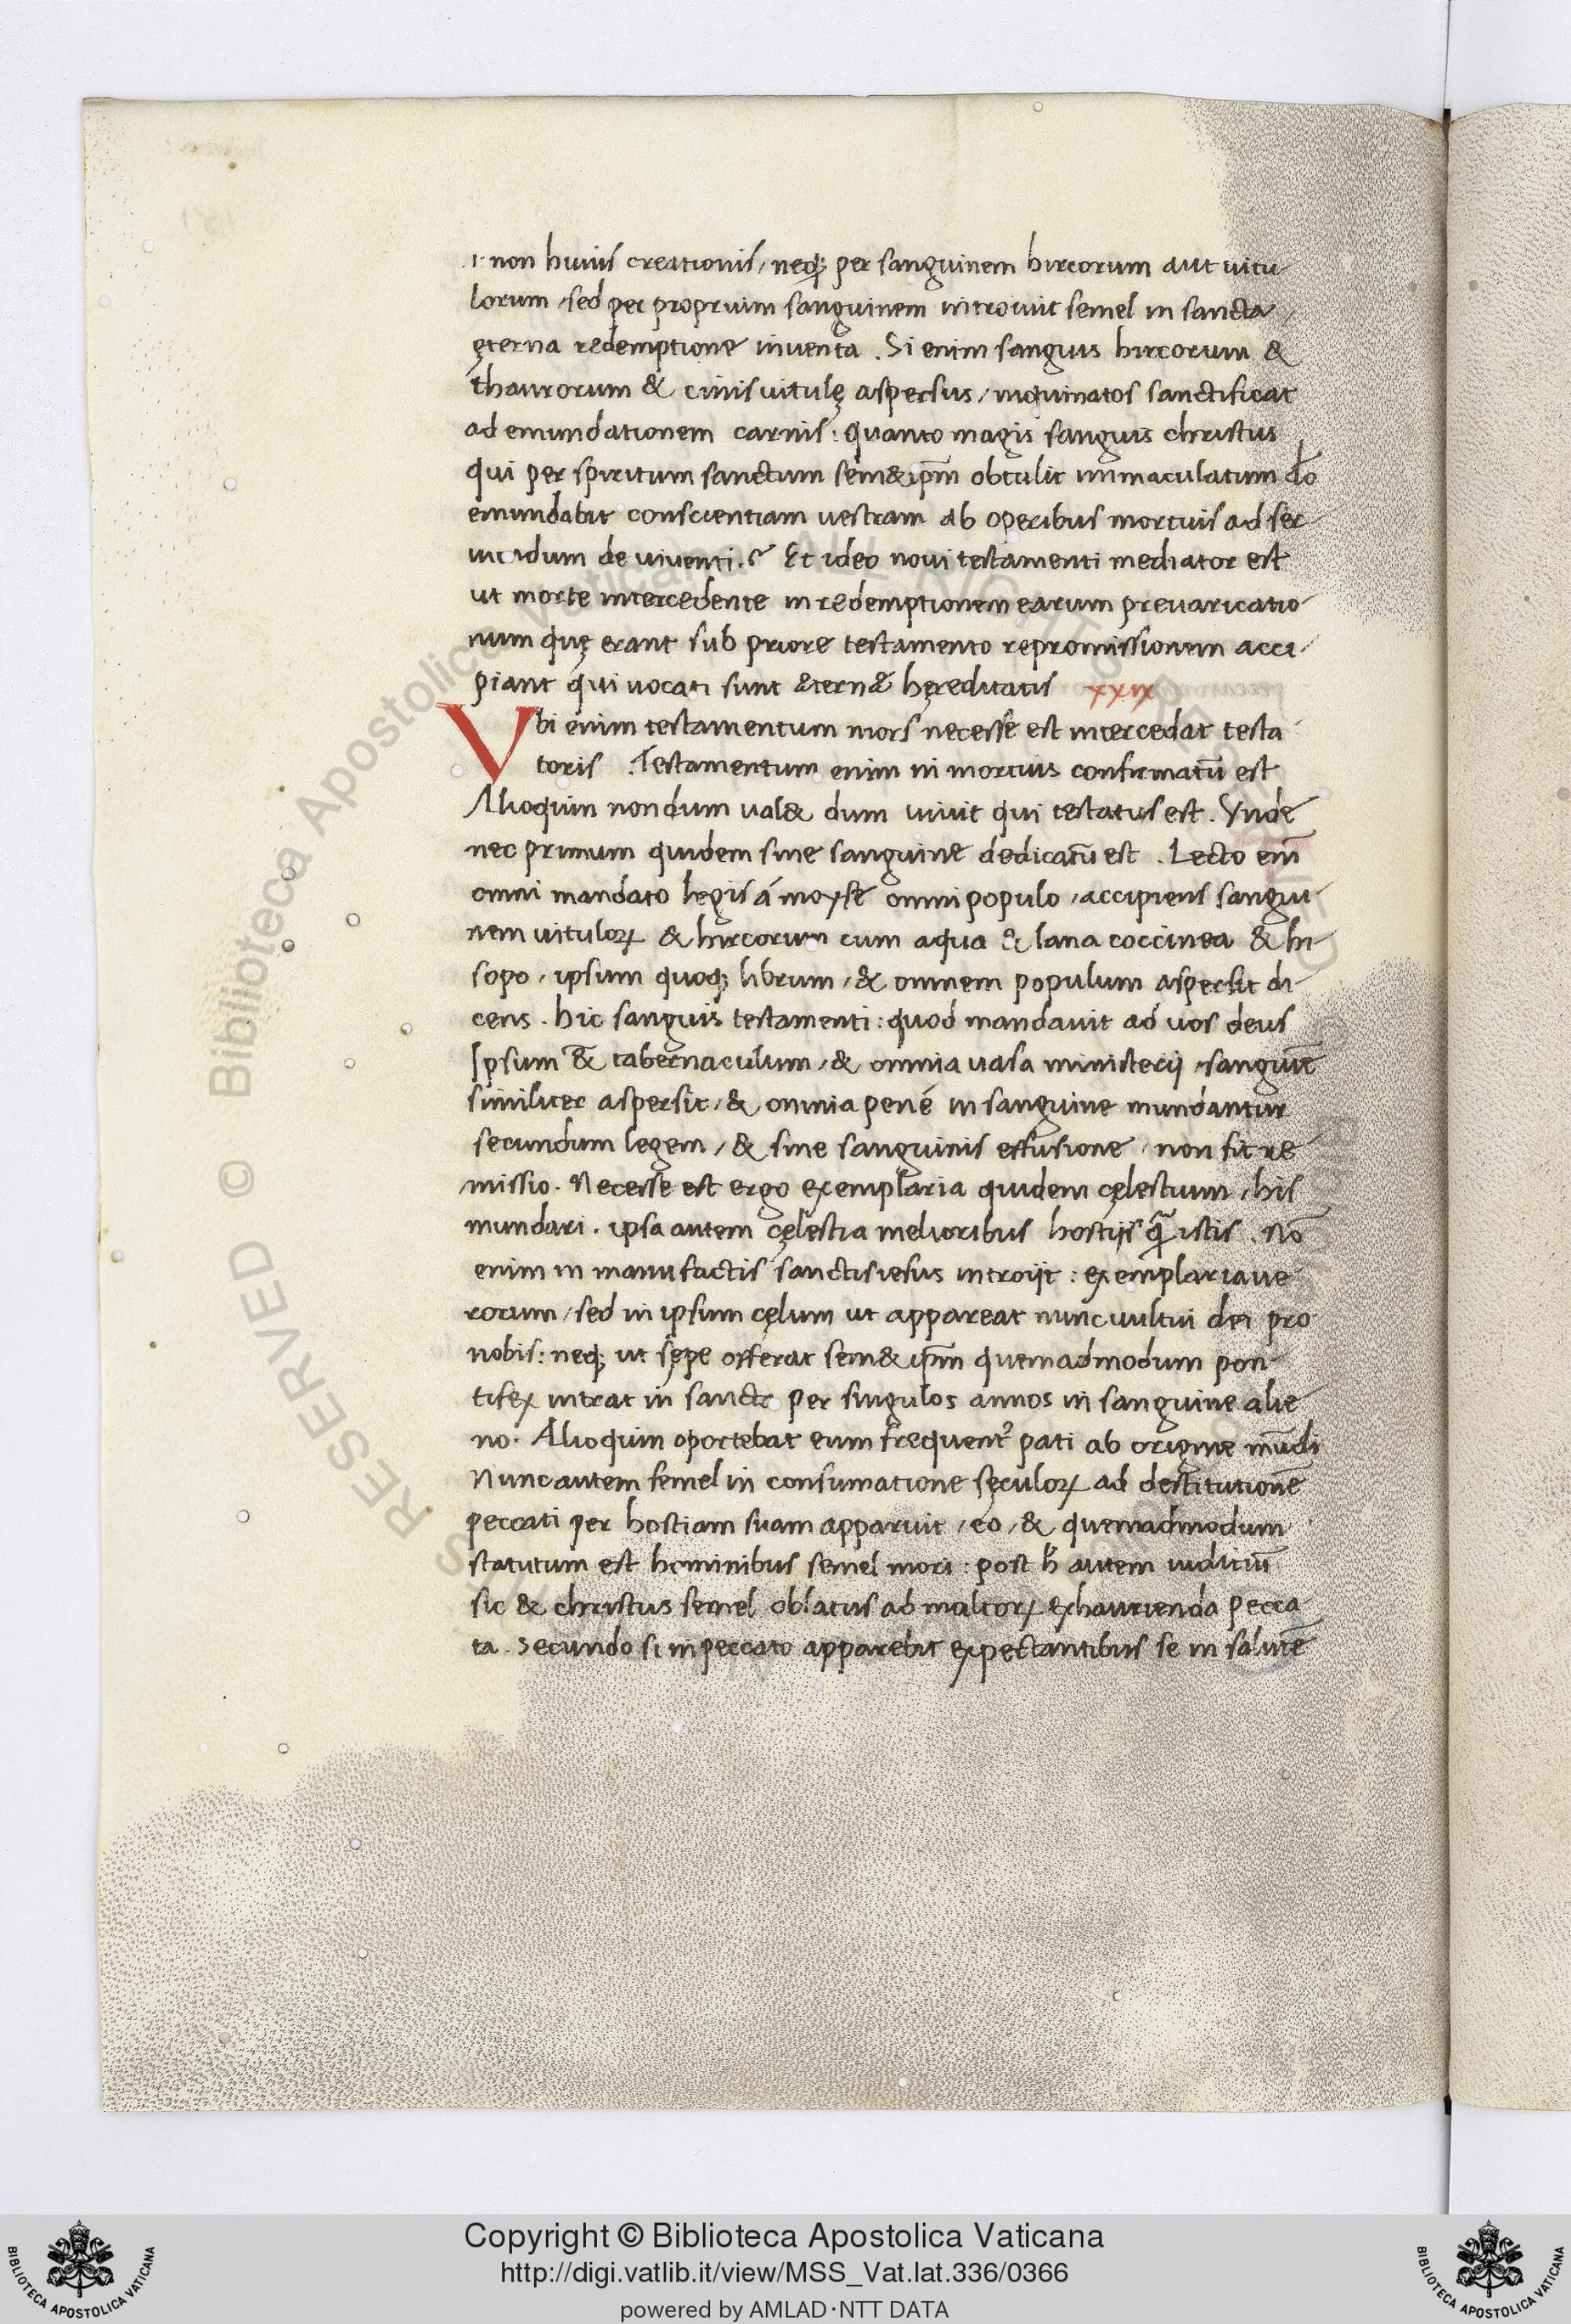 ı non huius creationis, neq; per sanguinem hircorum aut uitu
lorum, sed per proprium sanguinem introiuit semel in sancta,
ęterna redemptione inuenta. Si enim sanguis hircorum &
thaurorum & cinis uitulę aspersus, inquinatos sanctificat
ad emundationem carnis: quanto magis sanguis christus
qui per spiritum sanctum sem&ip̄m obtulit immaculatum dō
emundabit conscientiam uestram ab operibus mortuis ad ser
uiendum deo uiuenti.? Et ideo noui testamenti mediator est
ut morte intercedente in redemptionem earum preuaricatio
num quę erant sub priore testamento repromissionem acci-
piant qui uocati sunt &ern& hęreditatis xxix
Vbi enim testamentum mors necesse est intercedat testa
toris. Testamentum enim in mortuis confirmatū est
Alioquin nondum ual& dum uiuit qui testatus est. Vnde
nec primum quidem sine sanguine dedicatū est. Lecto em̄
omni mandato legis á moyse omni populo, accipiens sangui
nem uituloꝝ & hircorum cum aqua & lana coccinea & hi-
sopo, ipsum quoq; librum, & omnem populum aspersit di-
cens. hic sanguis testamenti: quod mandauit ad uos deus
Ipsum &̄ tabernaculum, & omnia uasa ministerij, sanguīe
similiter aspersit, & omnia pené in sanguine mundantur
secundum legem, & sine sanguinis effusione, non fit re
missio. Necesse est ergo exemplaria quidem cęlestium, his
mundari. ipsa autem cęlestia melioribus hostijs q̄ istis. Nō
enim in manufactis sanctis iesus introijt: exemplaria ue
rorum, sed in ipsum cęlum ut appareat nunc uultui dei pro
nobis: neq; ut sępe offerat sem&ip̄m quemadmodum pon-
tifex intrat in sancta per singulos annos in sanguine alie
no. Alioquin oportebat eum frequent᾽ pati ab origine mūdi
Nunc autem semel in consumatione sęculoꝝ ad destitutionē
peccati per hostiam suam apparuit, eo, & quemadmodum
statutum est hominibus semel mori: post h̄ autem iuditiū
sic & christus semel oblatus ad multoꝝ exhaurienda pecca
ta. Secundo si in peccato apparebit expectantibus se in salutē
RESERVED © Biblioteca Apostolica Vaticana
Copyright © Biblioteca Apostolica Vaticana
http://digi.vatlib.it/view/MSS_Vat.lat.336/0366
powered by AMLAD·NTT DATA
BIBLIOTECA APOSTOLICA VATICANA
BIBLIOTECA APOSTOLICA VATICANA